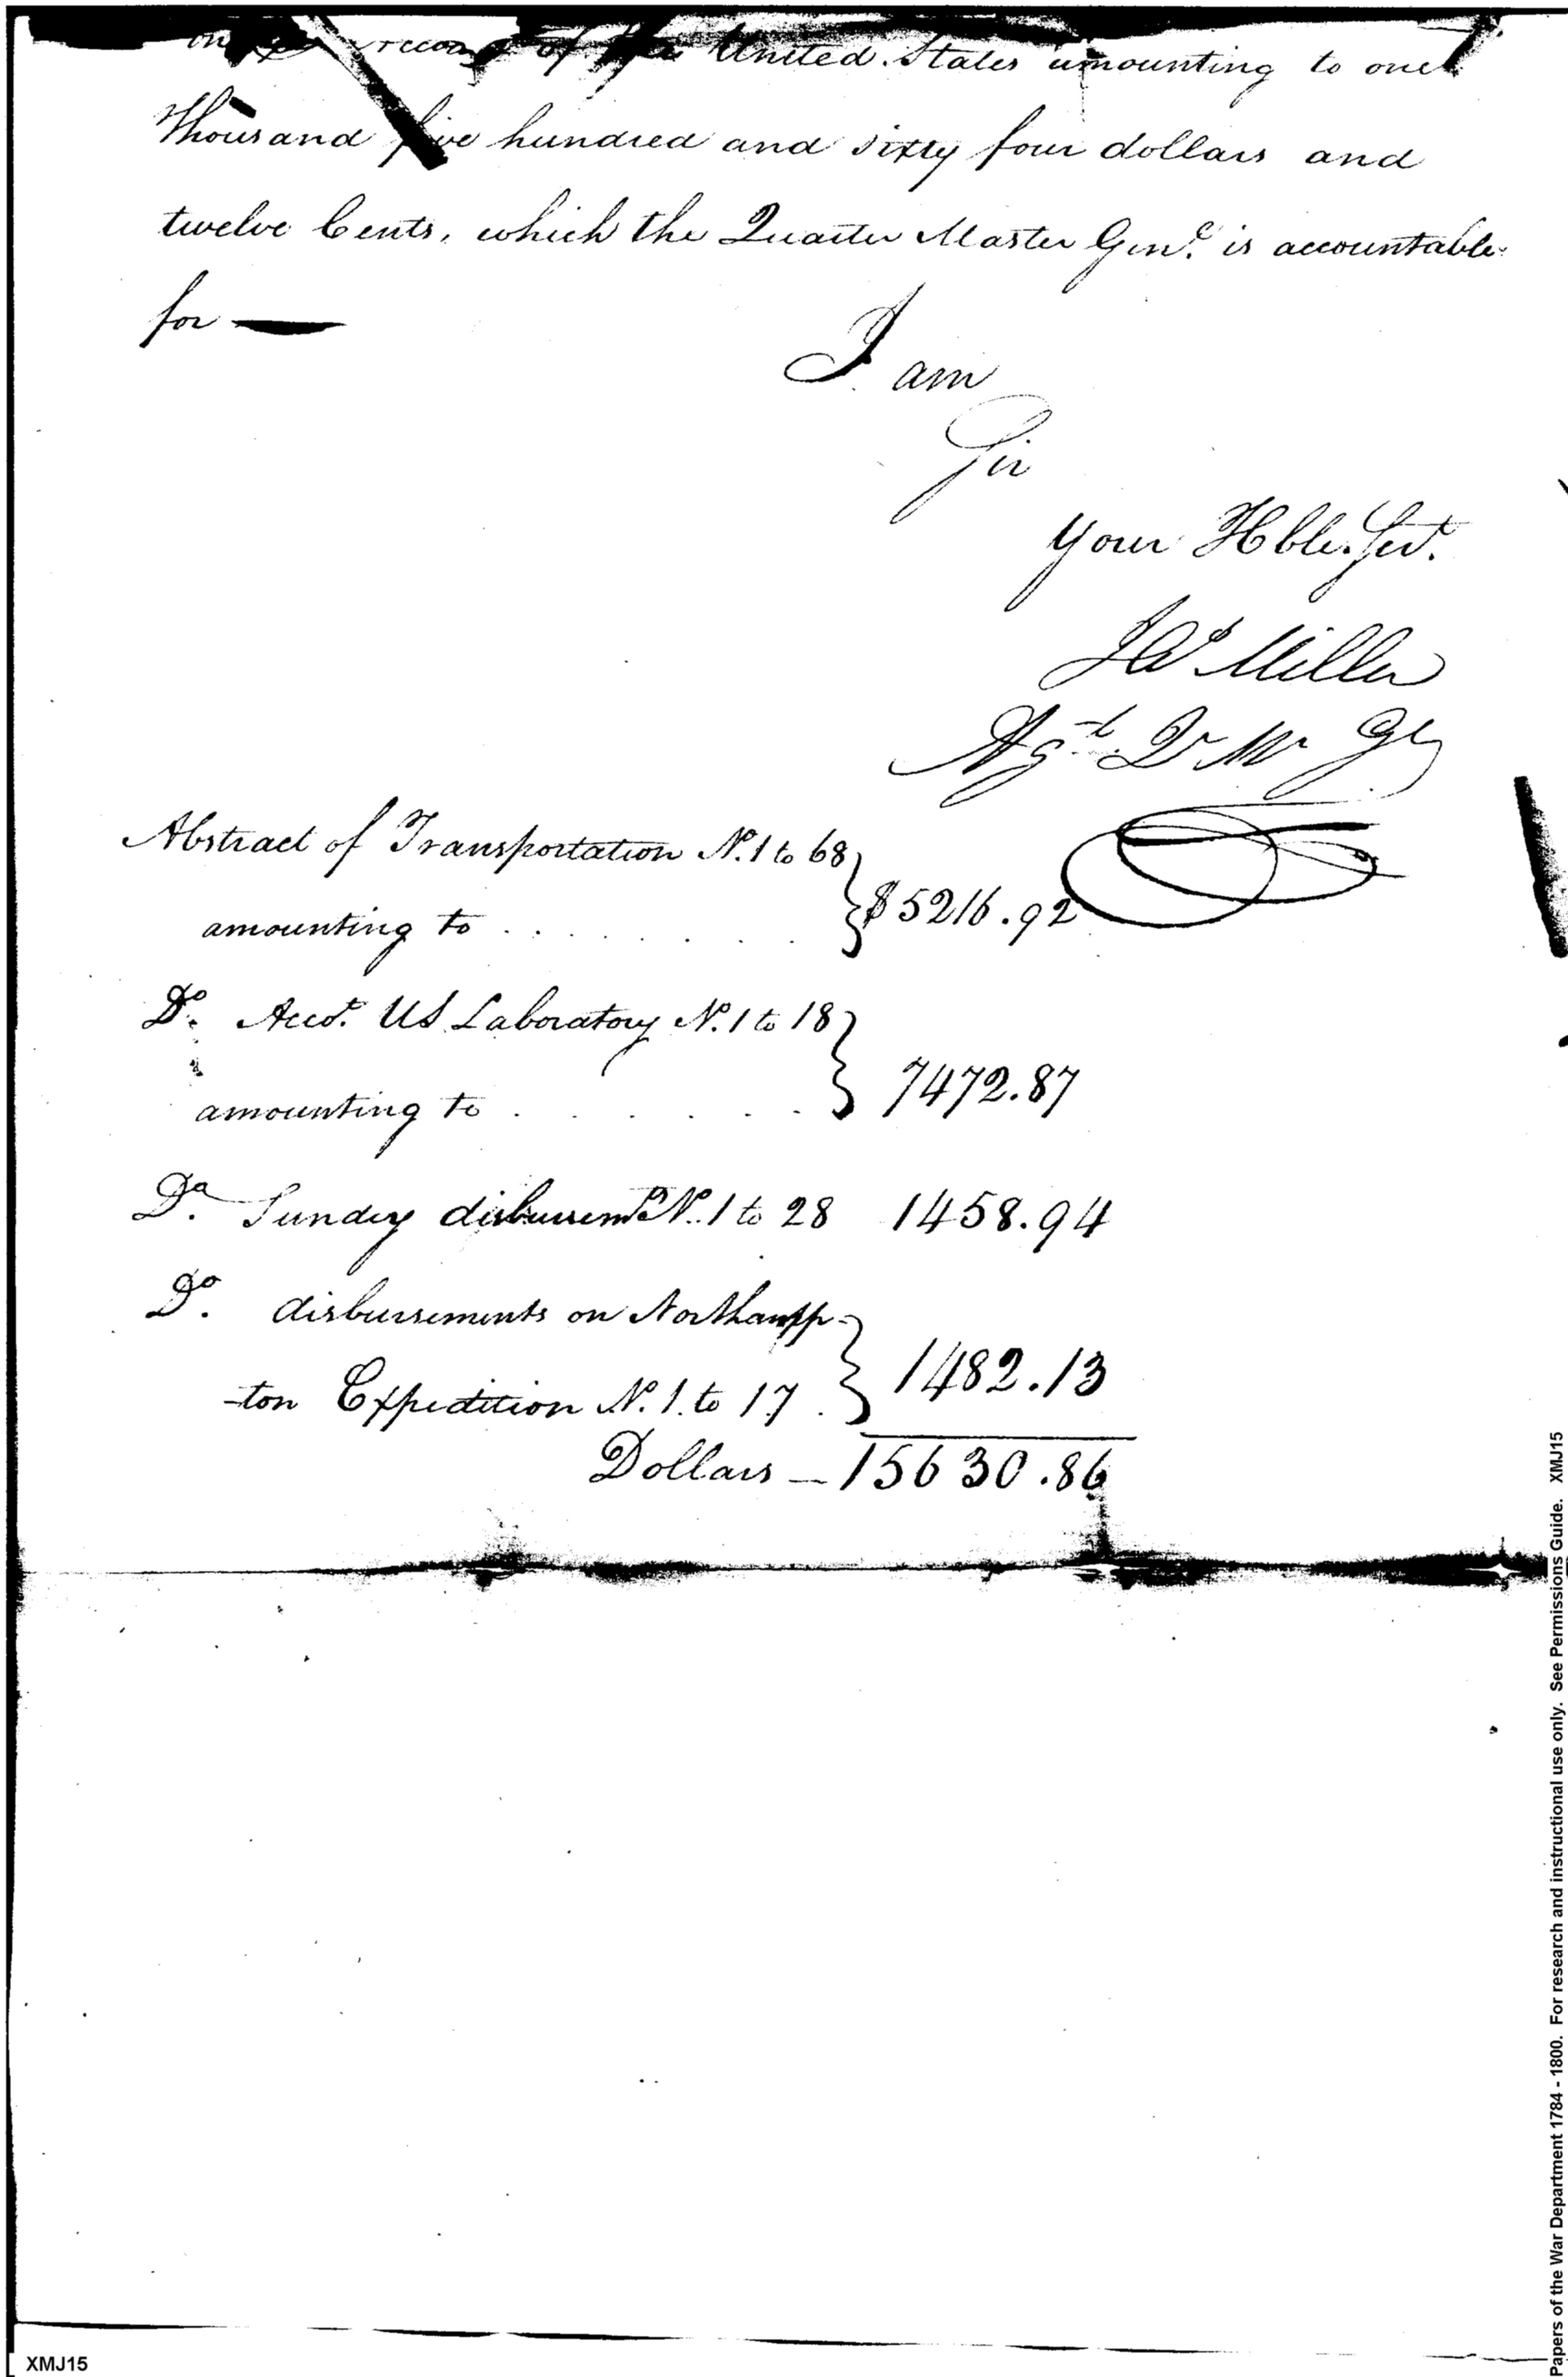 on account of the United States amounting to one
Thousand five hundred and sixty four dollars and
twelve Cents, which the Quarter Master Genl. is accountable
for —
I am
Sir
your Hble. Sert.
Jas Miller
Agt Qr Mr Gl
Abstract of Transportation No. 1 to 68
amounting to . . . . . . . $5216.92
Do. Accot. US Laboratory No. 1 to 18
amounting to . . . . . . 7472.87
Do. Sundry disbursemts No. 1 to 28 1458.94
Do. disbursements on Northamp-
-ton Expedition No. 1. to 17 . 1482.13
Dollars — 15630.86
Papers of the War Department 1784 - 1800. For research and instructional use only. See Permissions Guide. XMJ15
XMJ15